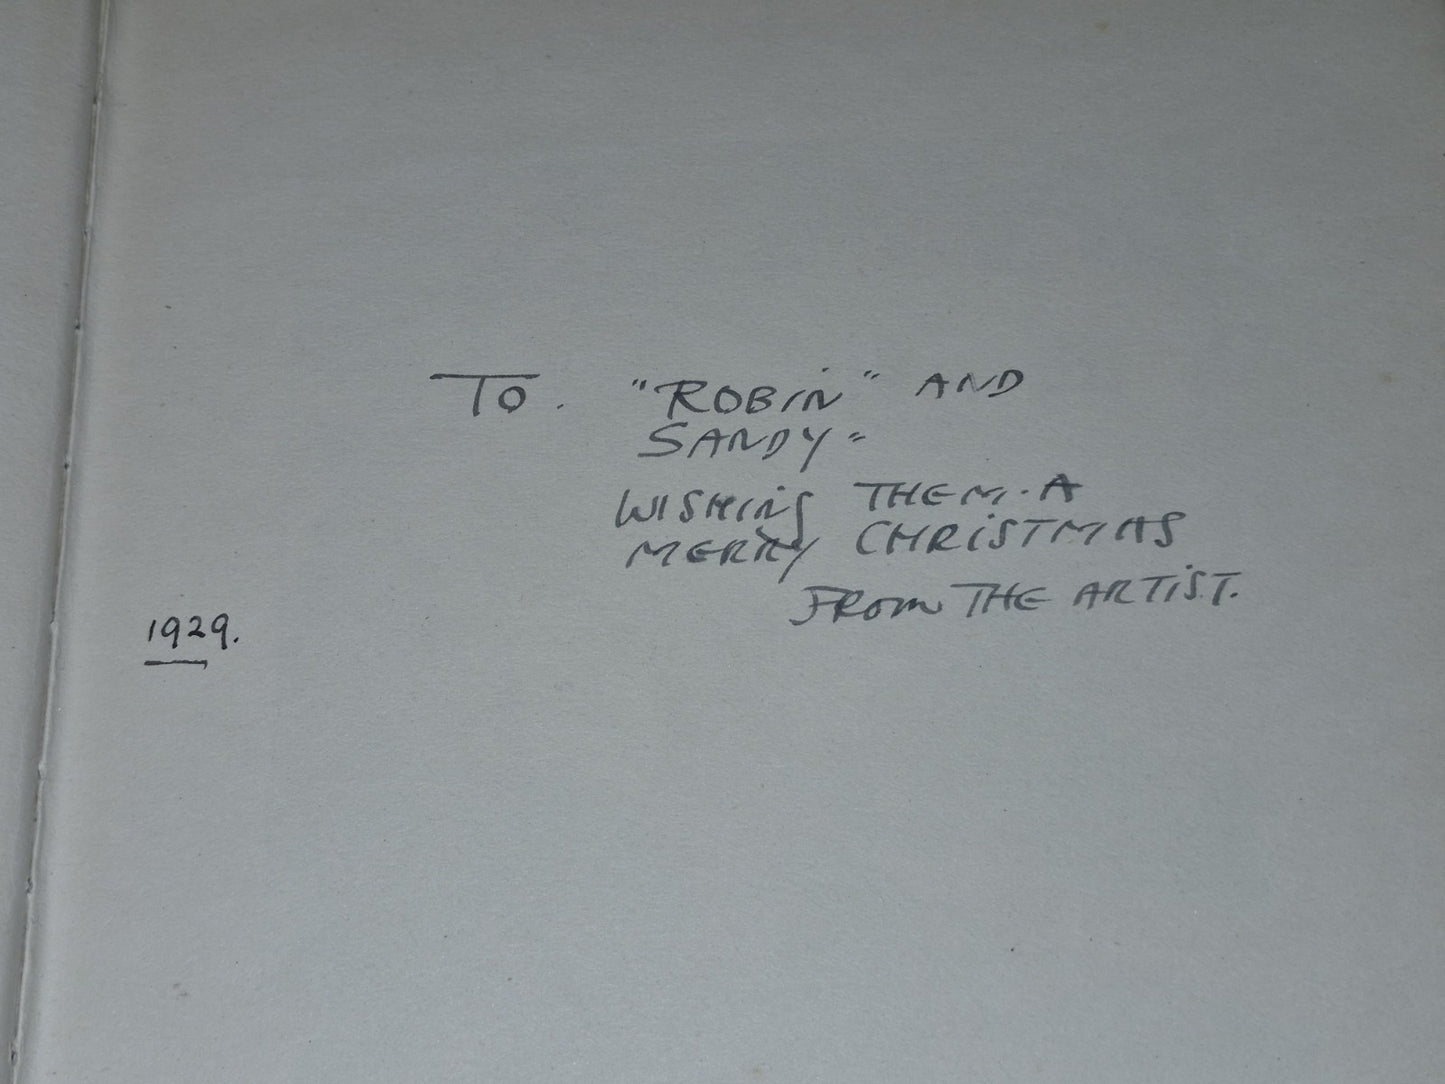 TO. "ROBIN" AND
SANDY =
WISHING THEM. A
MERRY CHRISTMAS
FROM THE ARTIST.
1929.